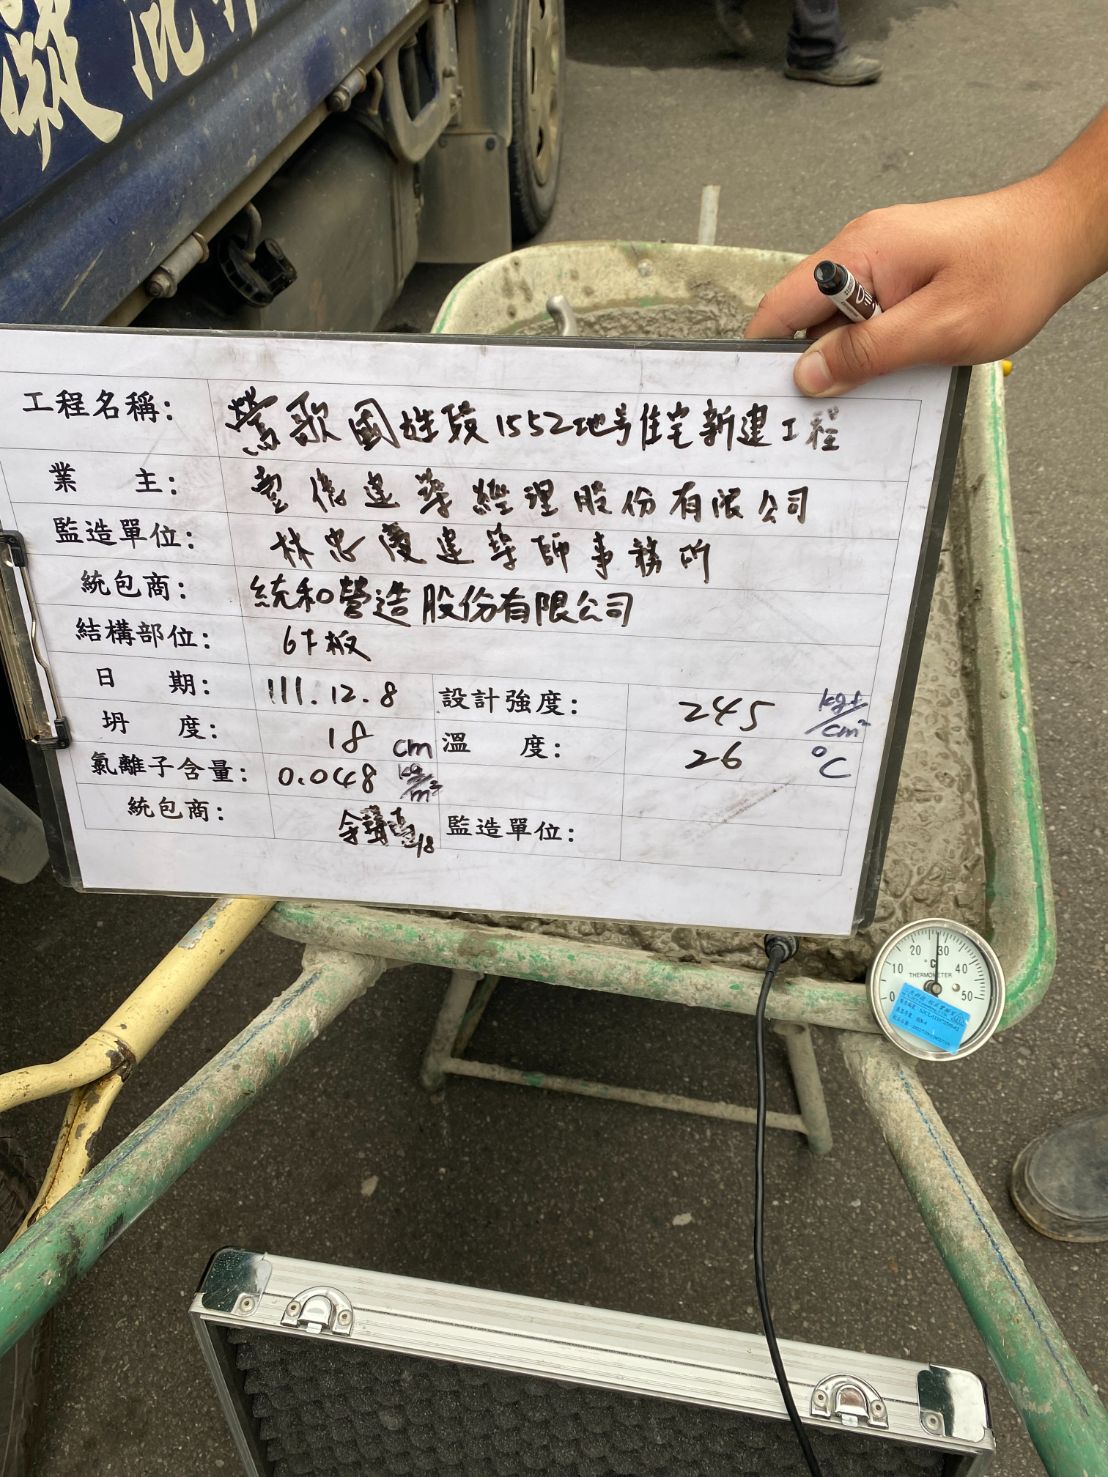 凝混
工程名稱: 鶯歌國姓段1552地号住宅新建工程
業 主: 建築經理股份有限公司
監造單位: 林忠慶建築師事務所
統包商: 統和營造股份有限公司
結構部位: 6F板
日 期: 111.12.8 設計強度: 245 kgf/cm²
坍 度: 18 cm 溫 度: 26 °C
氯離子含量: 0.048 kg/m³
統包商: 監造單位:
0 10 20 30 40 50
°C
THERMOMETER